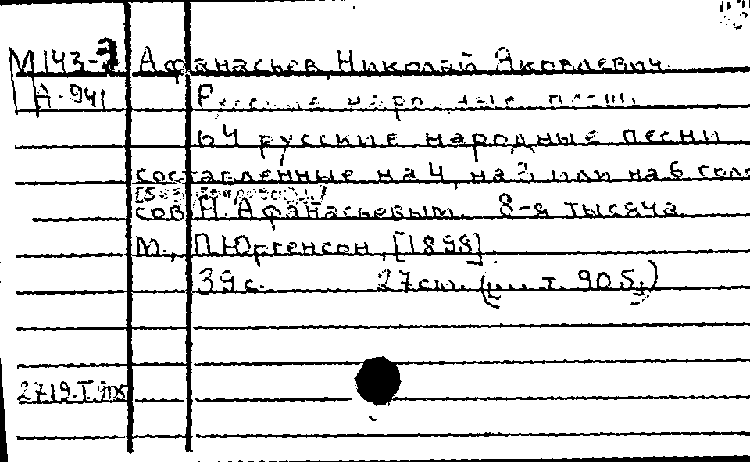 М143-3 Афанасьев, Николай Яковлевич.
А-941 Русские народные песни.
64 русские народные песни
составленные на 4, на 3 или на 6 голо
сов Н. Афанасьевым. 8-я тысяча.
М., П. Юргенсон, [1898].
39 с. 27 см. (н. т. 905)
2719.I